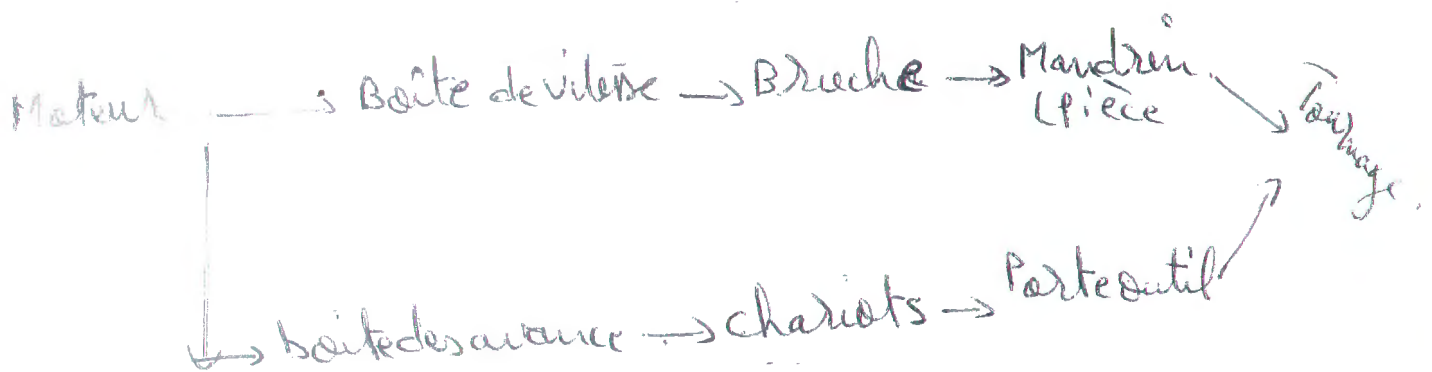 Moteur → Boîte de vitesse → Broche → Mandrin
(pièce
Tournage.
boîte des avance → chariots → Porte outil